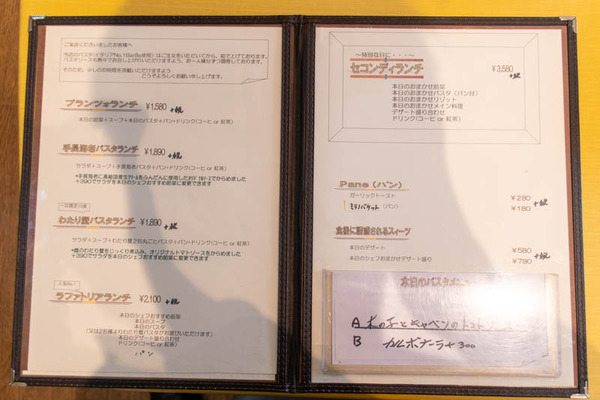 ご来店くださいましたお客様へ
そのため、少しのお時間を頂戴いただけますよう
どうぞよろしくお願い申し上げます。
プランツォランチ ¥1,580 +税
本日の前菜+スープ+本日のパスタ+パン+ドリンク(コーヒ or 紅茶)
手長海老パスタランチ ¥1,890 +税
サラダ+スープ+手長海老パスタ+パン+ドリンク(コーヒ or 紅茶)
+390でサラダを本日のシェフおすすめ前菜に変更できます
わたり蟹パスタランチ ¥1,890 +税
サラダ+スープ+わたり蟹2匹丸ごとパスタ+パン+ドリンク(コーヒ or 紅茶)
+390でサラダを本日のシェフおすすめ前菜に変更できます
ラファトリアランチ ¥2,100 +税
本日のシェフおすすめ前菜
本日のスープ
本日のパスタ
本日のデザート盛り合わせ
ドリンク(コーヒ or 紅茶)
パン
〜特別な日に・・・〜
セコンディランチ ¥3,580 +税
本日のおまかせ前菜
本日のおまかせパスタ(パン付)
本日のおまかせリゾット
本日のおまかせメイン料理
デザート盛り合わせ
ドリンク(コーヒ or 紅茶)
Pane(パン)
ガーリックトースト ¥280
ミニバケット(パン) ¥180 +税
スイーツ
本日のデザート ¥580
本日のシェフおまかせデザート盛り ¥780 +税
本日のパスタメニュー
A 木の子とキャベツのトマトソース
B カルボナーラ+300